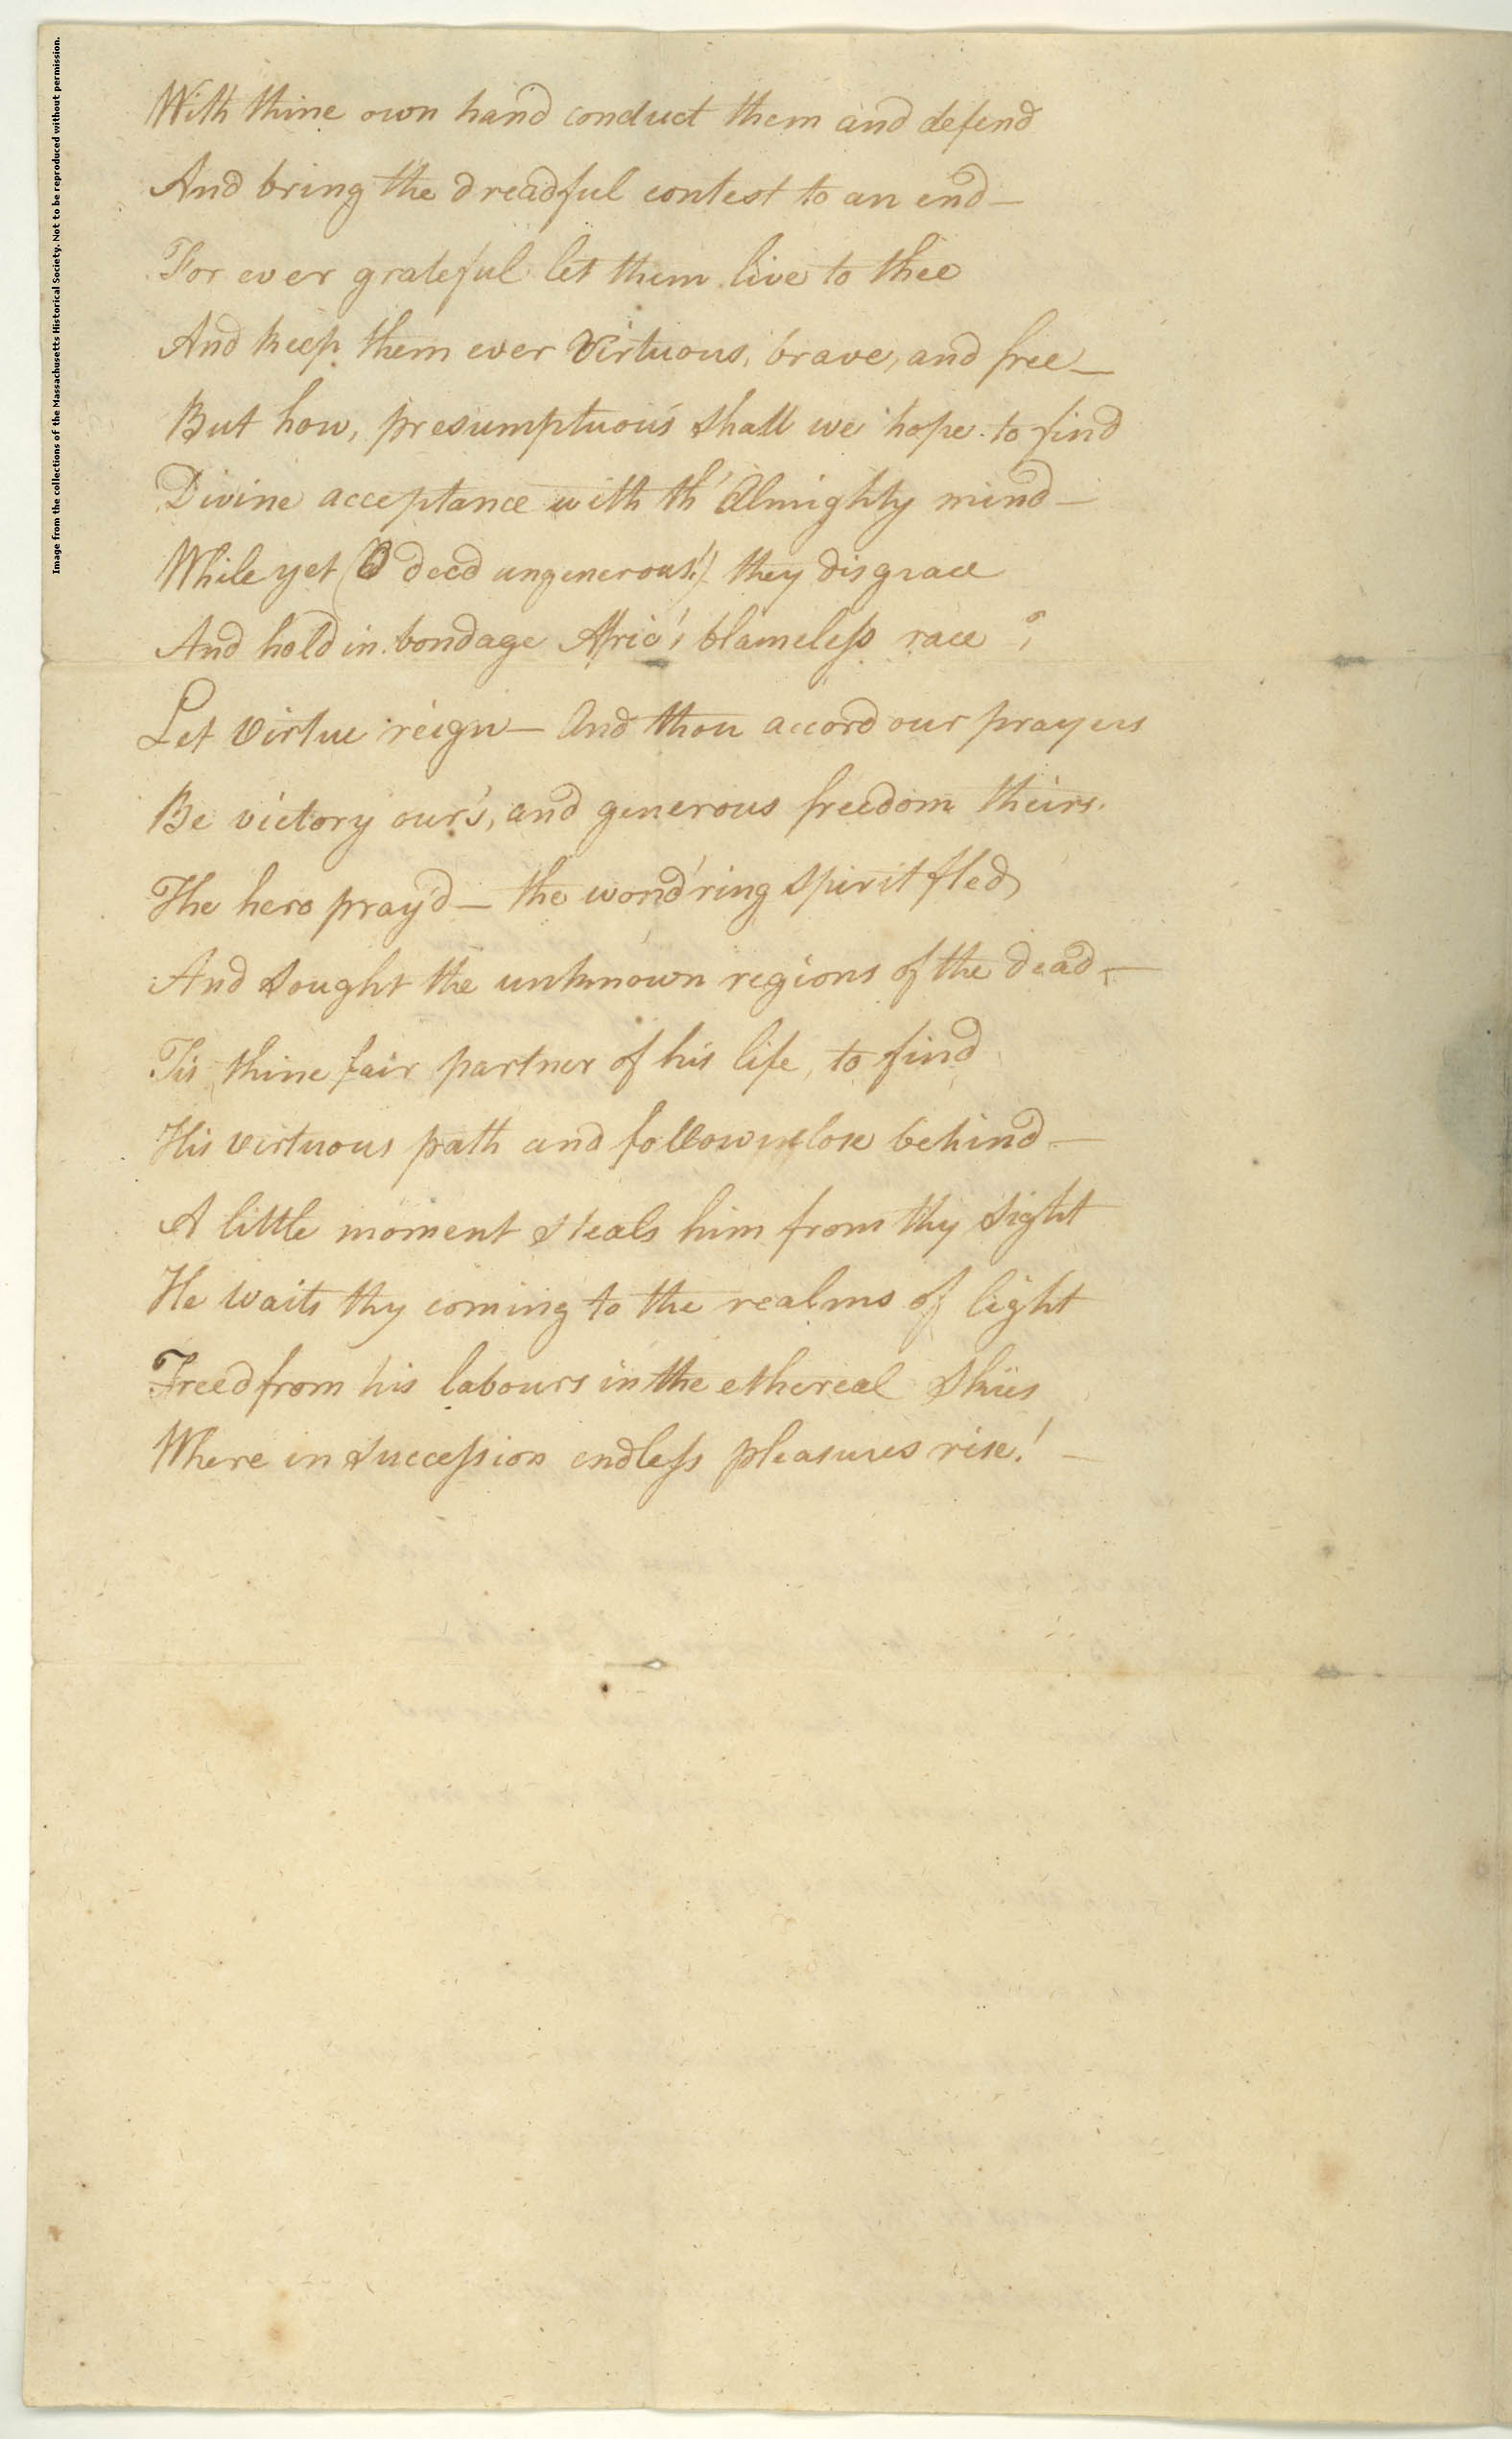 Image from the collections of the Massachusetts Historical Society. Not to be reproduced without permission.
With thine own hand conduct them and defend
And bring the dreadful contest to an end—
For ever grateful let them live to thee
And keep them ever Virtuous, brave, and free—
But how, presumptuous shall we hope to find
Divine acceptance with th' Almighty mind—
While yet (O deed ungenerous!) they disgrace
And hold in bondage Afric's blameless race?
Let Virtue reign— And thou accord our prayers
Be victory our's, and generous freedom theirs.
The hero pray'd— the wond'ring spirit fled
And Sought the unknown regions of the dead—
Tis thine fair partner of his life, to find
His virtuous path and follow close behind—
A little moment steals him from thy sight
He waits thy coming to the realms of light
Freed from his labours in the ethereal Skies
Where in succession endless pleasures rise!—